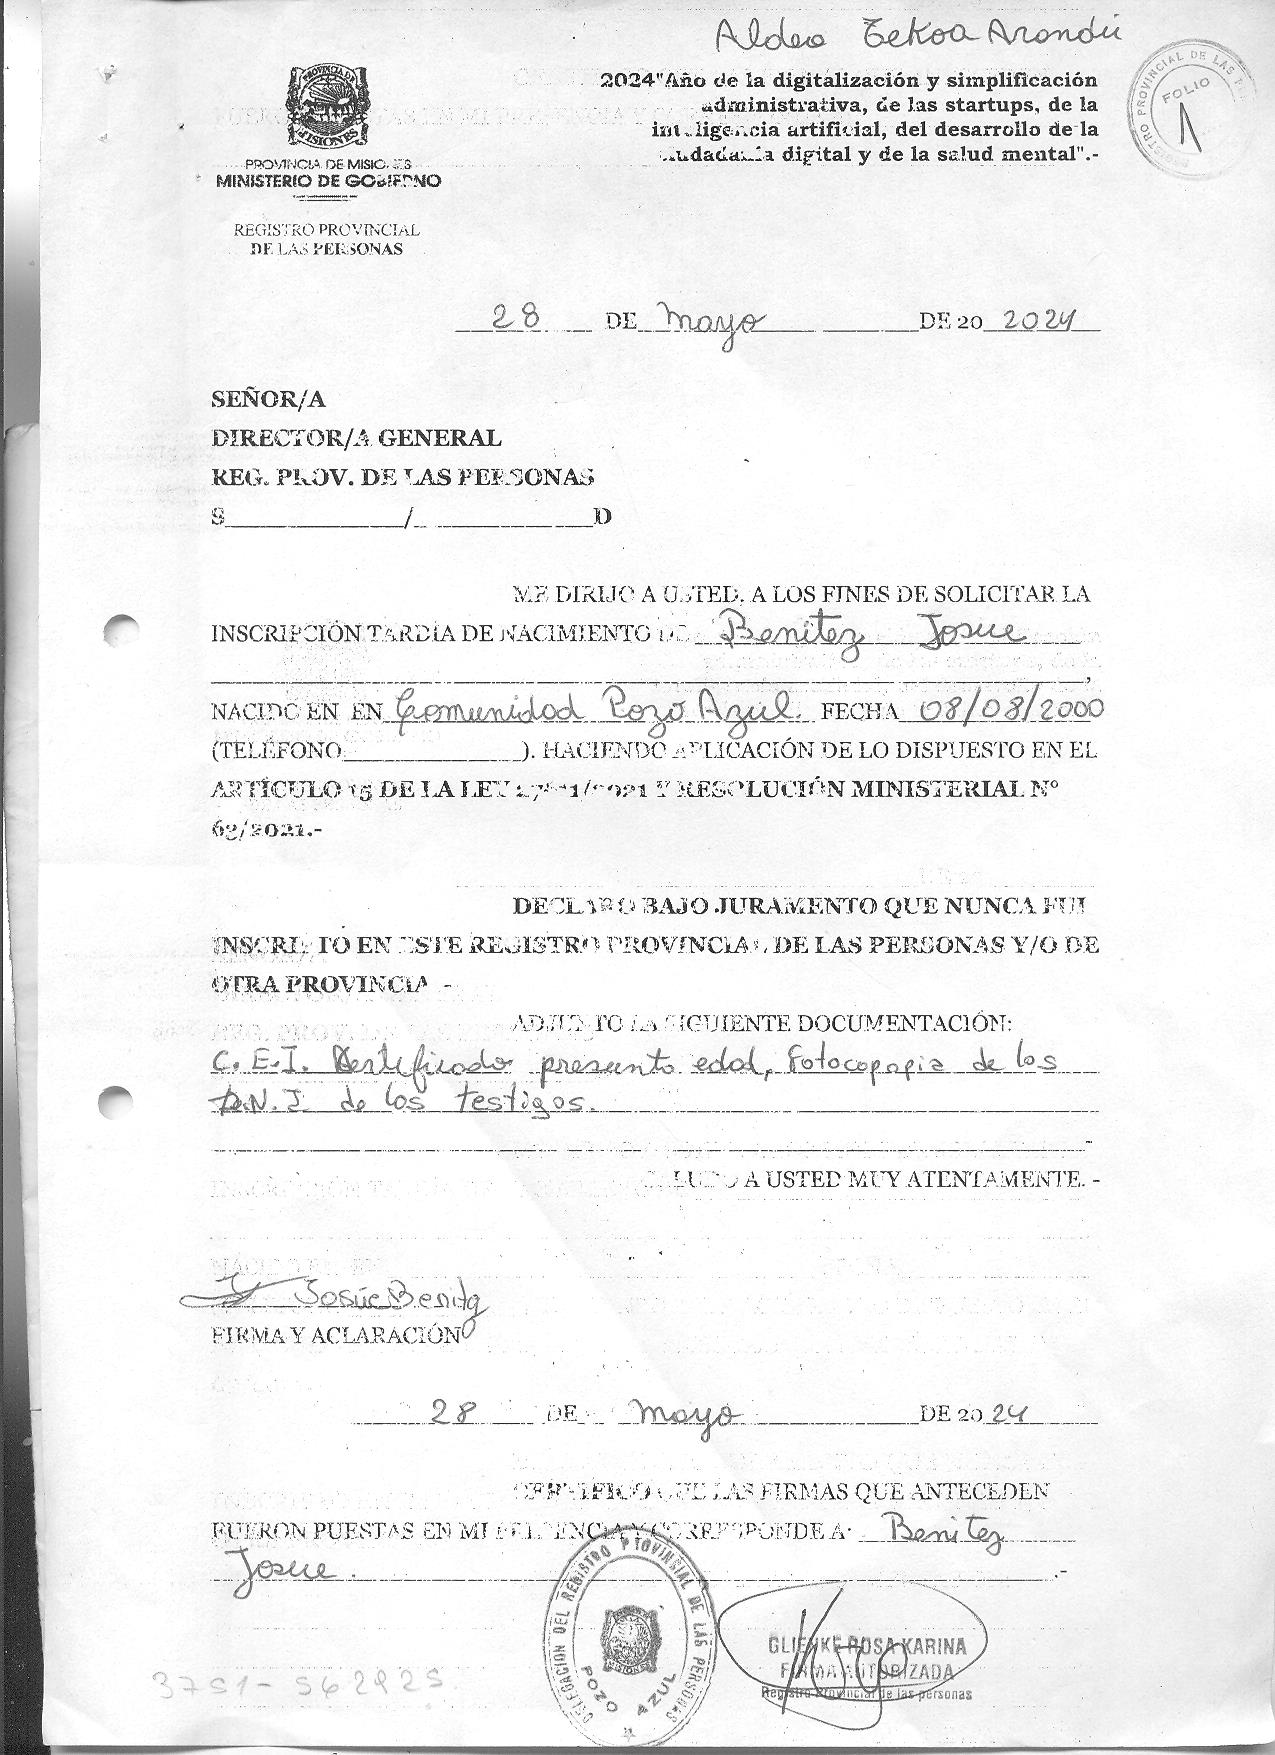 Aldea Tekoa Arandú
2024"Año de la digitalización y simplificación
administrativa, de las startups, de la
inteligencia artificial, del desarrollo de la
ciudadanía digital y de la salud mental".-
REGISTRO PROVINCIAL DE LAS
FOLIO
1
PROVINCIA DE MISIONES
PROVINCIA DE MISIONES
MINISTERIO DE GOBIERNO
REGISTRO PROVINCIAL
DE LAS PERSONAS
28 DE Mayo DE 20 2024
SEÑOR/A
DIRECTOR/A GENERAL
REG. PROV. DE LAS PERSONAS
S____________/____________D
ME DIRIJO A USTED, A LOS FINES DE SOLICITAR LA
INSCRIPCIÓN TARDÍA DE NACIMIENTO DE Benitez Josue
,
NACIDO EN EN Comunidad Pozo Azul. FECHA 08/08/2000
(TELÉFONO____________). HACIENDO APLICACIÓN DE LO DISPUESTO EN EL
ARTÍCULO 15 DE LA LEY Y RESOLUCIÓN MINISTERIAL N°
63/2021.-
DECLARO BAJO JURAMENTO QUE NUNCA FUI
INSCRIPTO EN ESTE REGISTRO PROVINCIAL DE LAS PERSONAS Y/O DE
OTRA PROVINCIA -
ADJUNTO LA SIGUIENTE DOCUMENTACIÓN:
C.E.I. Certificado presunto edad, Fotocopapia de los
D.N.I de los testigos.
-
SALUDO A USTED MUY ATENTAMENTE. -
Josúe Benitz
FIRMA Y ACLARACIÓN
28 DE Mayo DE 2024
CERTIFICO QUE LAS FIRMAS QUE ANTECEDEN
FUERON PUESTAS EN MI PRESENCIA Y CORRESPONDE A: Benitez
Josue. .-
DELEGACION DEL REGISTRO PROVINCIAL DE LAS PERSONAS
MISIONES
POZO AZUL
GLIENKE ROSA KARINA
FIRMA AUTORIZADA
Registro Provincial de las personas
3751-562825